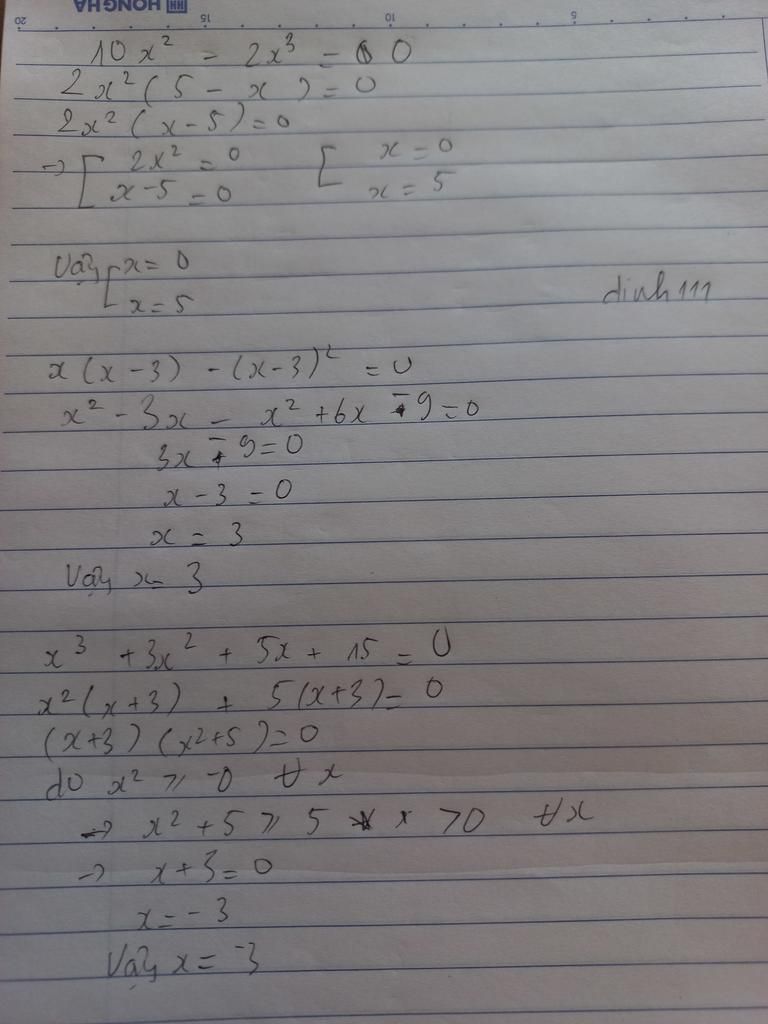 HONG HA
20 15 10 5
10x² - 2x³ = 0
2x² ( 5 - x ) = 0
2x² ( x - 5 ) = 0
→ [ 2x² = 0 [ x = 0
x - 5 = 0 x = 5
Vậy [ x = 0
x = 5
dinh 111
x (x - 3) - (x - 3)² = 0
x² - 3x - x² + 6x - 9 = 0
3x - 9 = 0
x - 3 = 0
x = 3
Vậy x = 3
x³ + 3x² + 5x + 15 = 0
x² (x + 3) + 5 (x + 3) = 0
(x + 3) (x² + 5) = 0
do x² ≥ 0 ∀ x
→ x² + 5 ≥ 5 > 0 ∀x
→ x + 3 = 0
x = - 3
Vậy x = -3